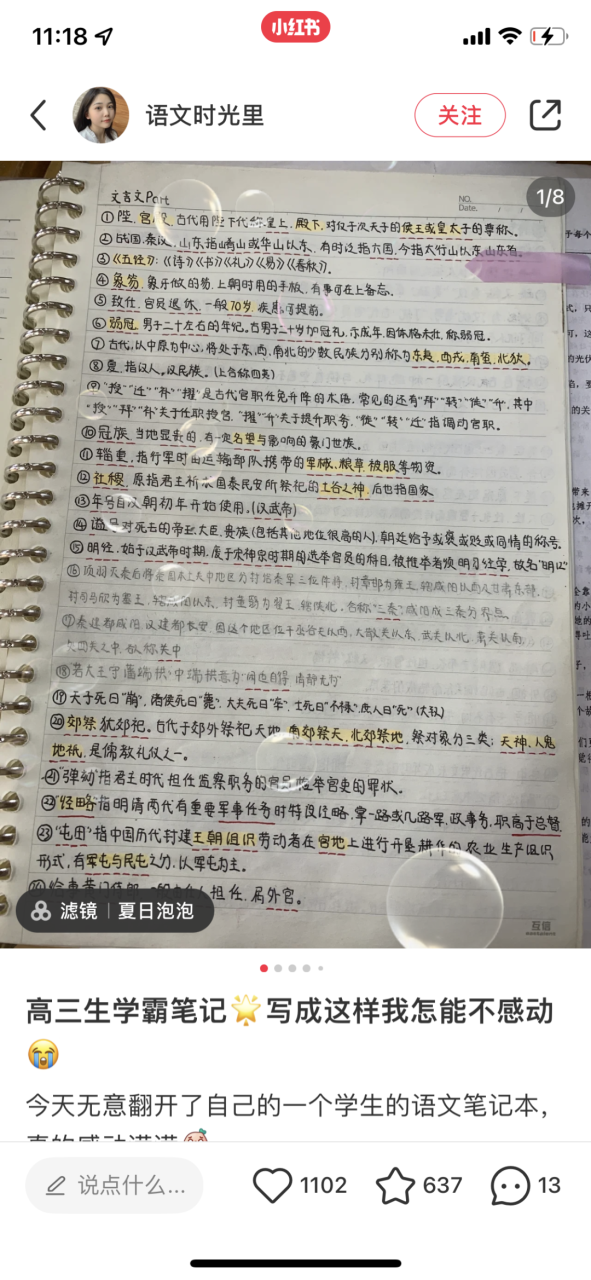 11:18
小红书
语文时光里
关注
1/8
文言文Part
NO.
Date.
①陛, 宫 古代用陛下代称皇上, 殿下, 对仅于次天子的侯王或皇太子的尊称。
②战国、秦汉, 山东, 指崤山或华山以东, 有时泛指六国, 今指太行山以东, 山东省。
③《五经》:《诗》《书》《礼》《易》《春秋》。
④象笏, 象牙做的笏, 上朝时用的手板, 有事可在上备忘。
⑤致仕, 官员退休, 一般70岁, 疾患可提前。
⑥弱冠, 男子二十左右的年纪。古男子二十岁加冠礼, 示成年, 因体格未壮, 称弱冠。
⑦古代, 以中原为中心, 将处于东、西、南北的少数民族分别称为东夷, 西戎, 南蛮, 北狄。
⑧夏, 指汉人。汉民族。(上合称四夷)
⑨"授""迁""补""擢"是古代官职任免升降的术语, 常见的还有"拜""转""徙""升", 其中
"授""拜""补"关于任职授官, "擢""升"关于提升职务, "徙""转""迁"指调动官职。
⑩冠族, 当地显赫的, 有一定名望与影响的豪门世族。
⑪辎重, 指行军时由运输部队携带的军械、粮草、被服等物资。
⑫社稷, 原指君主祈求国泰民安所祭祀的土谷之神, 后也指国家
⑬年号自汉朝初年开始使用。(汉武帝)
⑭谥号对死去的帝王, 大臣, 贵族(包括其他地位很高的人), 朝廷给予或褒或贬或同情的称号。
⑮明经, 始于汉武帝时期, 废于宋神宗时期的选举官员的科目, 被推举者须明习经学, 故名"明经"
⑯项羽灭秦后将秦国本土关中地区为封给秦军三位降将, 封章邯为雍王, 辖咸阳以西及甘肃东部,
封司马欣为塞王, 辖咸阳以东, 封董翳为翟王, 辖陕北, 合称"三秦", 咸阳成三秦分界点
⑰秦建都咸阳, 汉建都长安, 因这个地区位于函谷关以西, 大散关以东, 武关以北, 萧关以南,
四关之中, 故称关中
⑱若大王守藩端拱"中端拱意为"闲适自得 清静无为"
⑲天子死曰"崩", 诸侯死曰"薨", 大夫死曰"卒", 士死曰"不禄", 庶人曰"死"
⑳郊祭 犹郊祀。古代于郊外祭祀天地, 南郊祭天, 北郊祭地, 祭对象分三类: 天神、人鬼
地祇, 是儒教礼仪之一。
㉑"弹劾"指君主时代担任监察职务的官员检举官吏的罪状。
㉒"经略"指明清两代有重要军事任务时特设经略, 掌一路或几路军、政事务, 职高于总督
㉓"屯田"指中国历代封建王朝组织劳动者在官地上进行开垦耕作的农业生产组织
形式, 有军屯与民屯之分, 以军屯为主。
担任, 属外官。
滤镜 | 夏日泡泡
互信
高三生学霸笔记🌟写成这样我怎能不感动
😭
今天无意翻开了自己的一个学生的语文笔记本,
说点什么...
1102
637
13